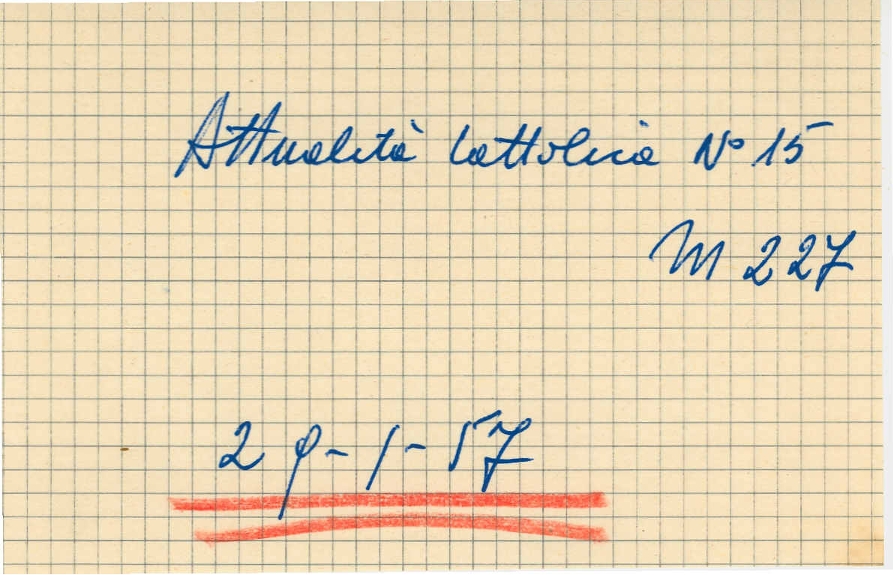 Attualità Cattolica N° 15
M 227
29-1-57